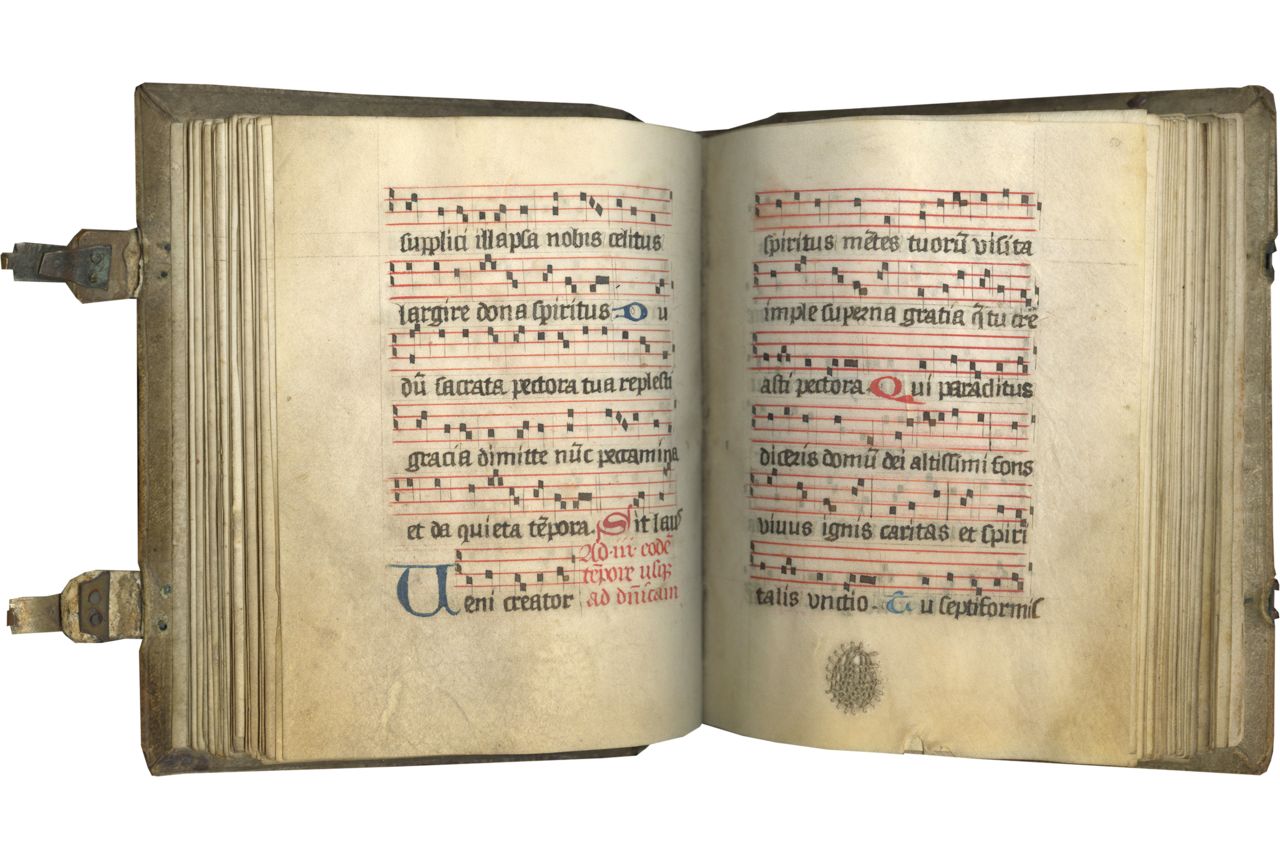 supplici illapsa nobis celitus
largire dona spiritus. D u
dū sacrata pectora tua replesti
gracia dimitte nūc peccamina
et da quieta tēpora. Sit laus
Ad .iii. eodē
tēpore usq;
Veni creator ad dn̄icam
50
spiritus mētes tuorū visita
imple superna gratia q̄ tu cre
asti pectora. Qui paraclitus
diceris domū dei altissimi fons
vivus ignis caritas et spiri
talis vnctio. Tu septiformis